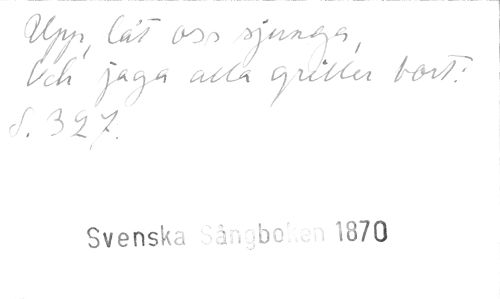 Upp, låt oss sjunga,
Och jaga alla griller bort:
S. 327.
Svenska Sångboken 1870